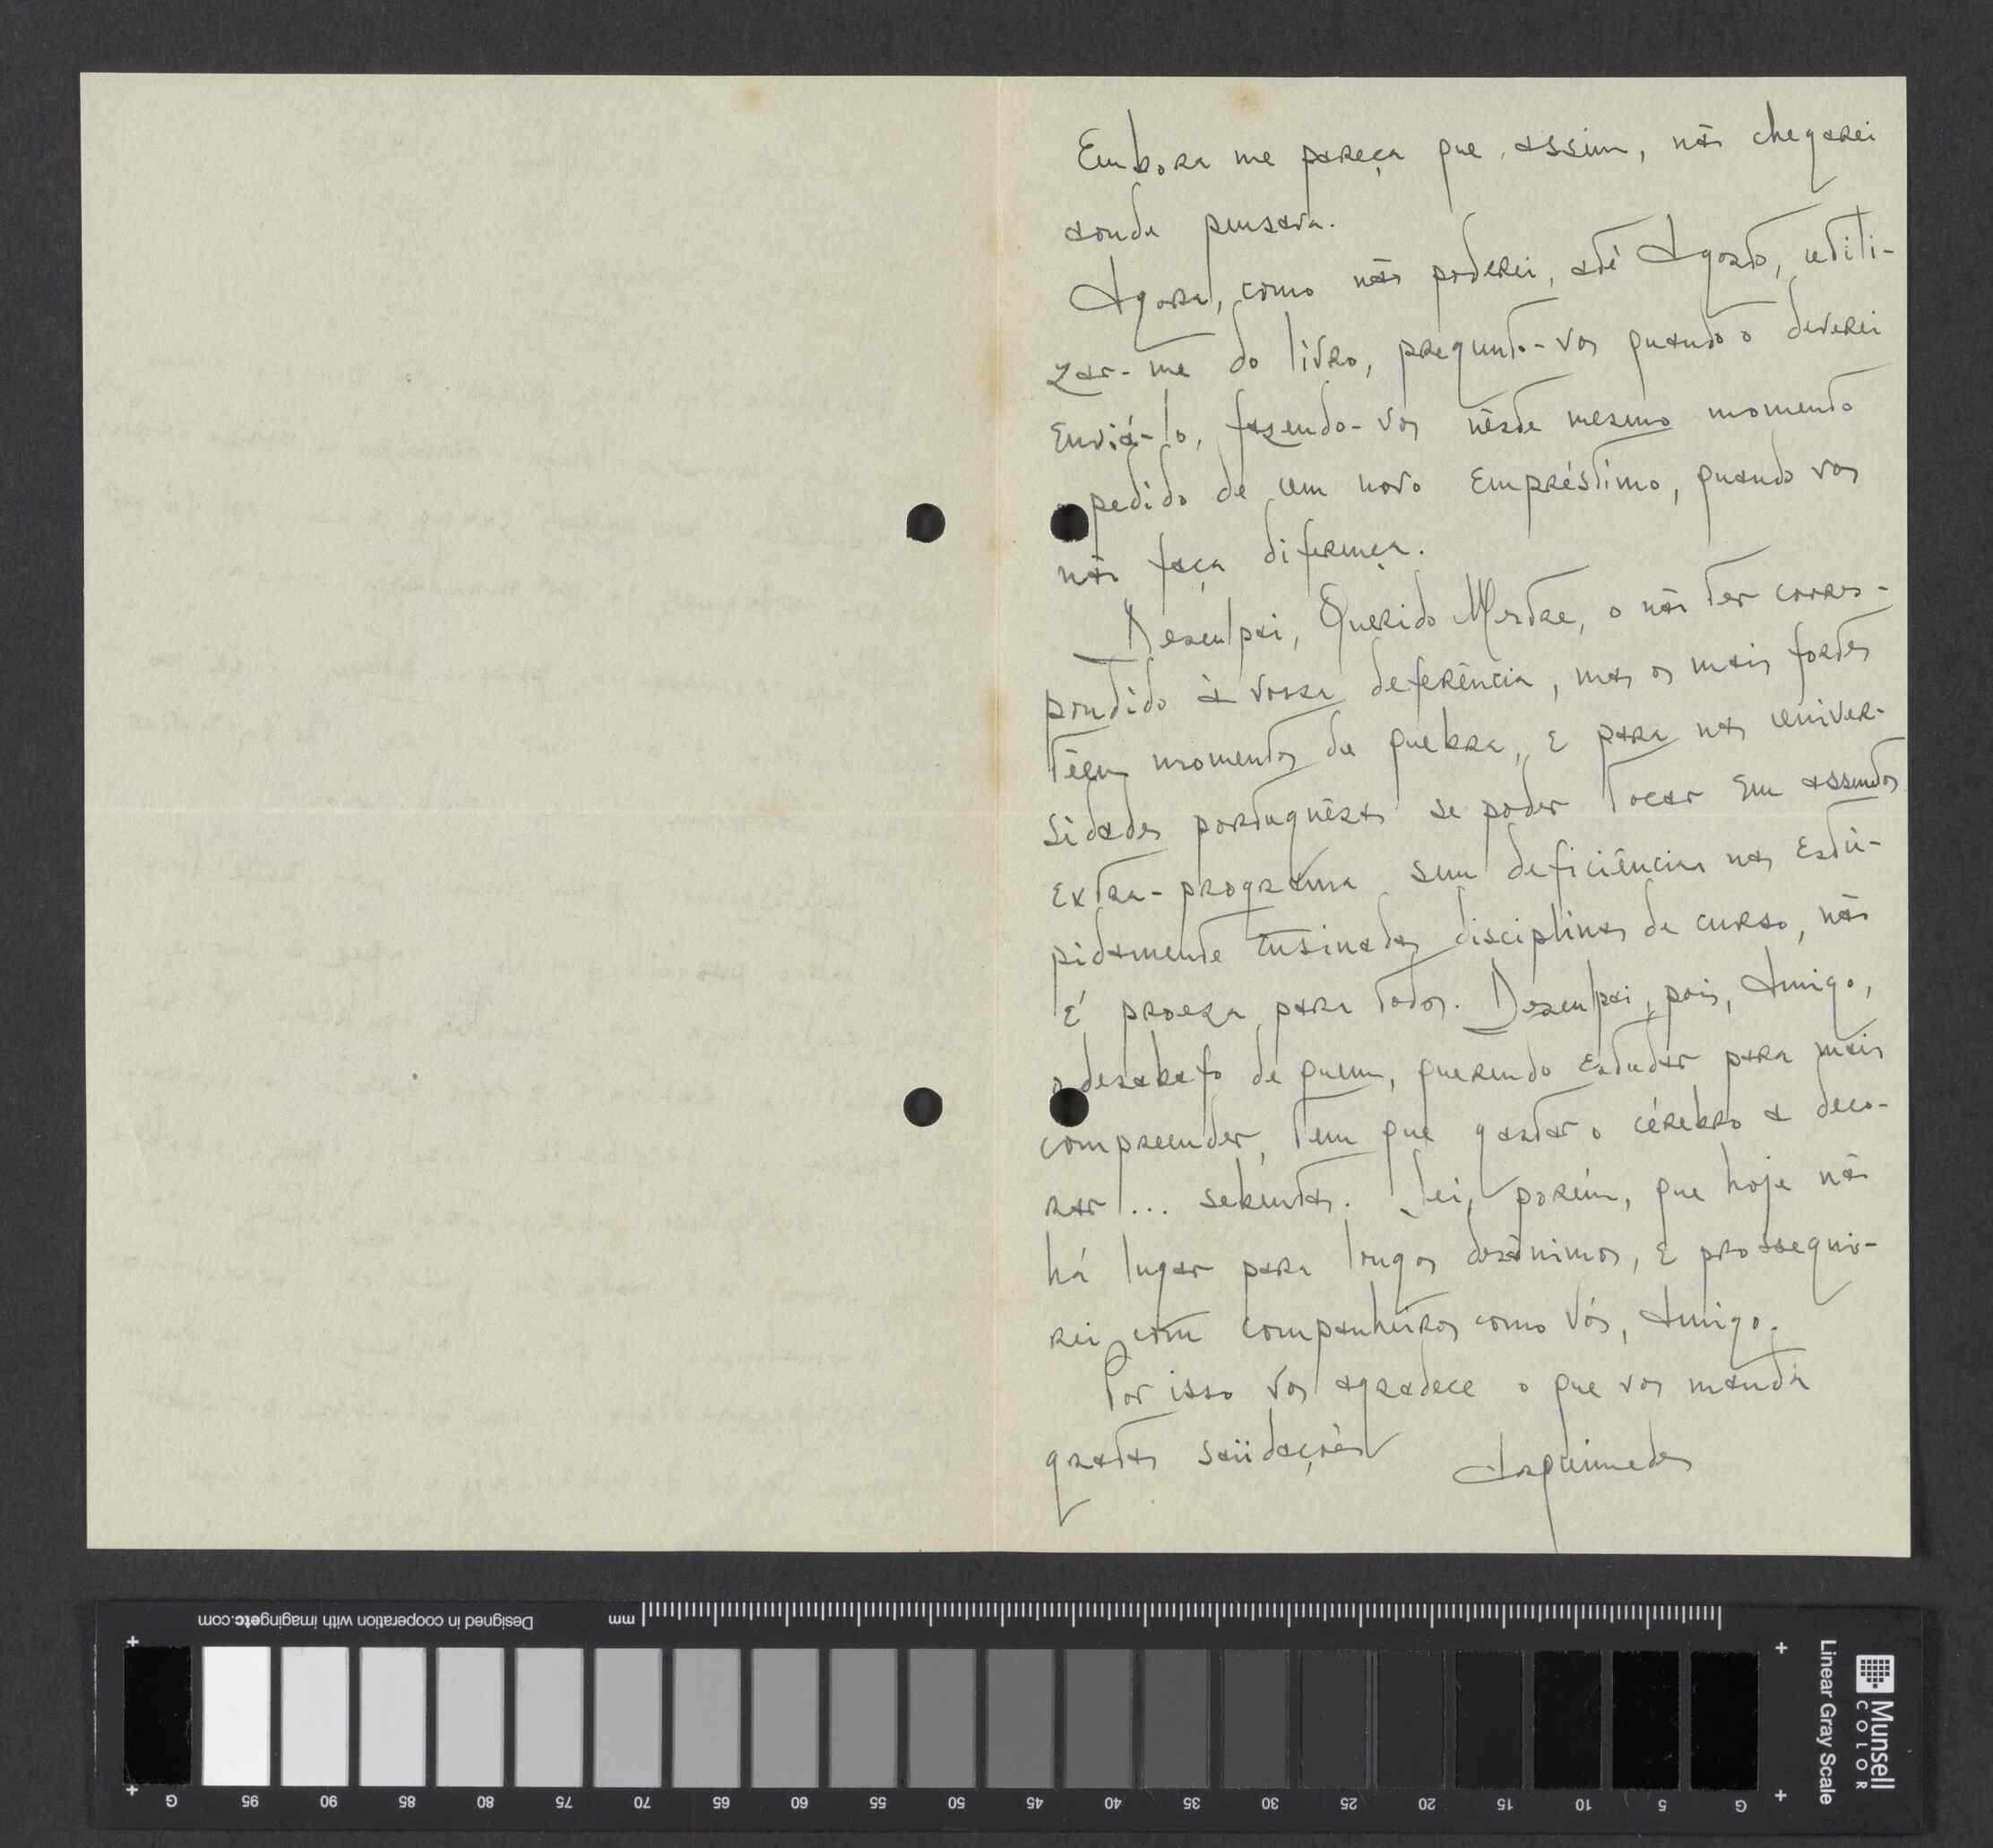 Embora me pareça que, assim, não chegarei
aonde pensava.
Agora, como não poderei, até Agosto, utili-
zar-me do livro, pregunto-vos quando o deverei
enviá-lo, fazendo-vos nêste mesmo momento
o pedido de um novo empréstimo, quando vos
não faça diferença.
Desculpai, Querido Mestre, o não ter corres-
pondido à vossa deferência, mas os mais fortes
têem momentos de quebra, e para nas univer-
sidades portuguêsas se poder tocar em assuntos
extra-programa sem deficiências nas estú-
pidamente ensinadas disciplinas de curso, não
é proeza para todos. Desculpai, pois, Amigo,
o desabafo de quem, querendo estudar para mais
compreender, tem que gastar o cérebro a deco-
rar... sebentas. Sei, porém, que hoje não
há lugar para longos desânimos, e prossegui-
rei com companheiros como vós, Amigo.
Por isso vos agradece o que vos manda
gratas saüdações Arquimedes
Designed in cooperation with imagingetc.com
mm
Munsell
COLOR
Linear Gray Scale
G 95 90 85 80 75 70 65 60 55 50 45 40 35 30 25 20 15 10 5 G